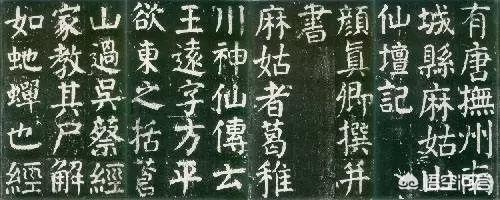 有唐撫州南
城縣麻姑山
仙壇記
顏真卿撰并
書
麻姑者葛稚
川神仙傳云
王遠字方平
欲東之括蒼
山過吳蔡經
家教其尸解
如虵蟬也經
悟空问答